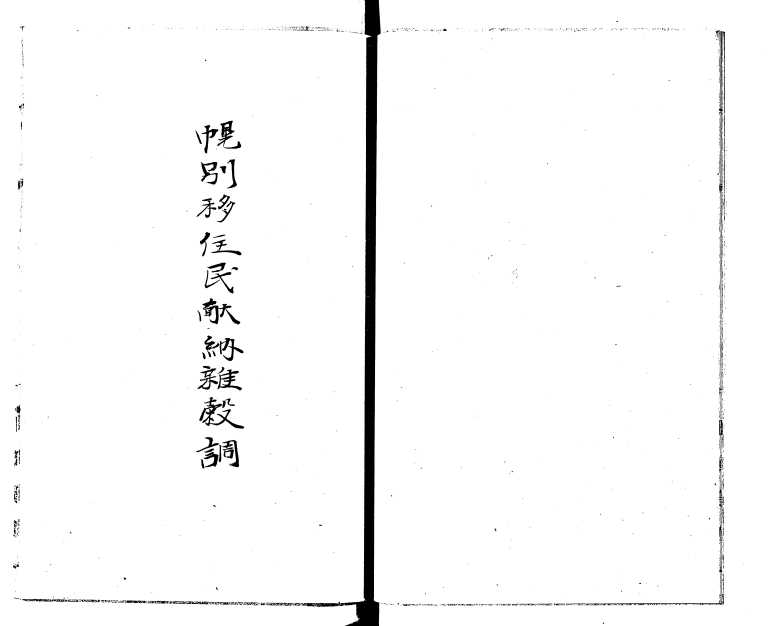 幌別移住民献納雑穀調